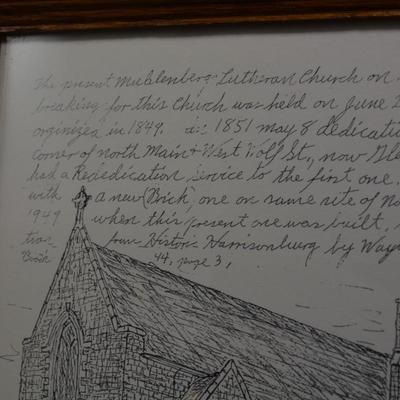 The present Muhlenberg Lutheran Church on
breaking for this Church was held on June 2
organized in 1849. 1851 may 8 dedicatio
corner of north Main & West Wolf St., now Gle
had a Rededication service to the first one.
with a new (Brick) one on same site of No
1949 when this present one was built,
tion from Historic Harrisonburg by Way
Book 44, page 3,